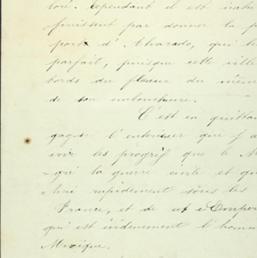 loir. Cependant il est natu
finissent par donner la p
port d'Alvarado, qui l
parfait, puisque cette ville
bords du fleuve du même
de son embouchure.
C'est en quittan
gager l'entendeur que j'a
voir les progrès que le M
qui la guerre
rapidement sous les
France, et de
qui est évidemment l'homm
Mexique.